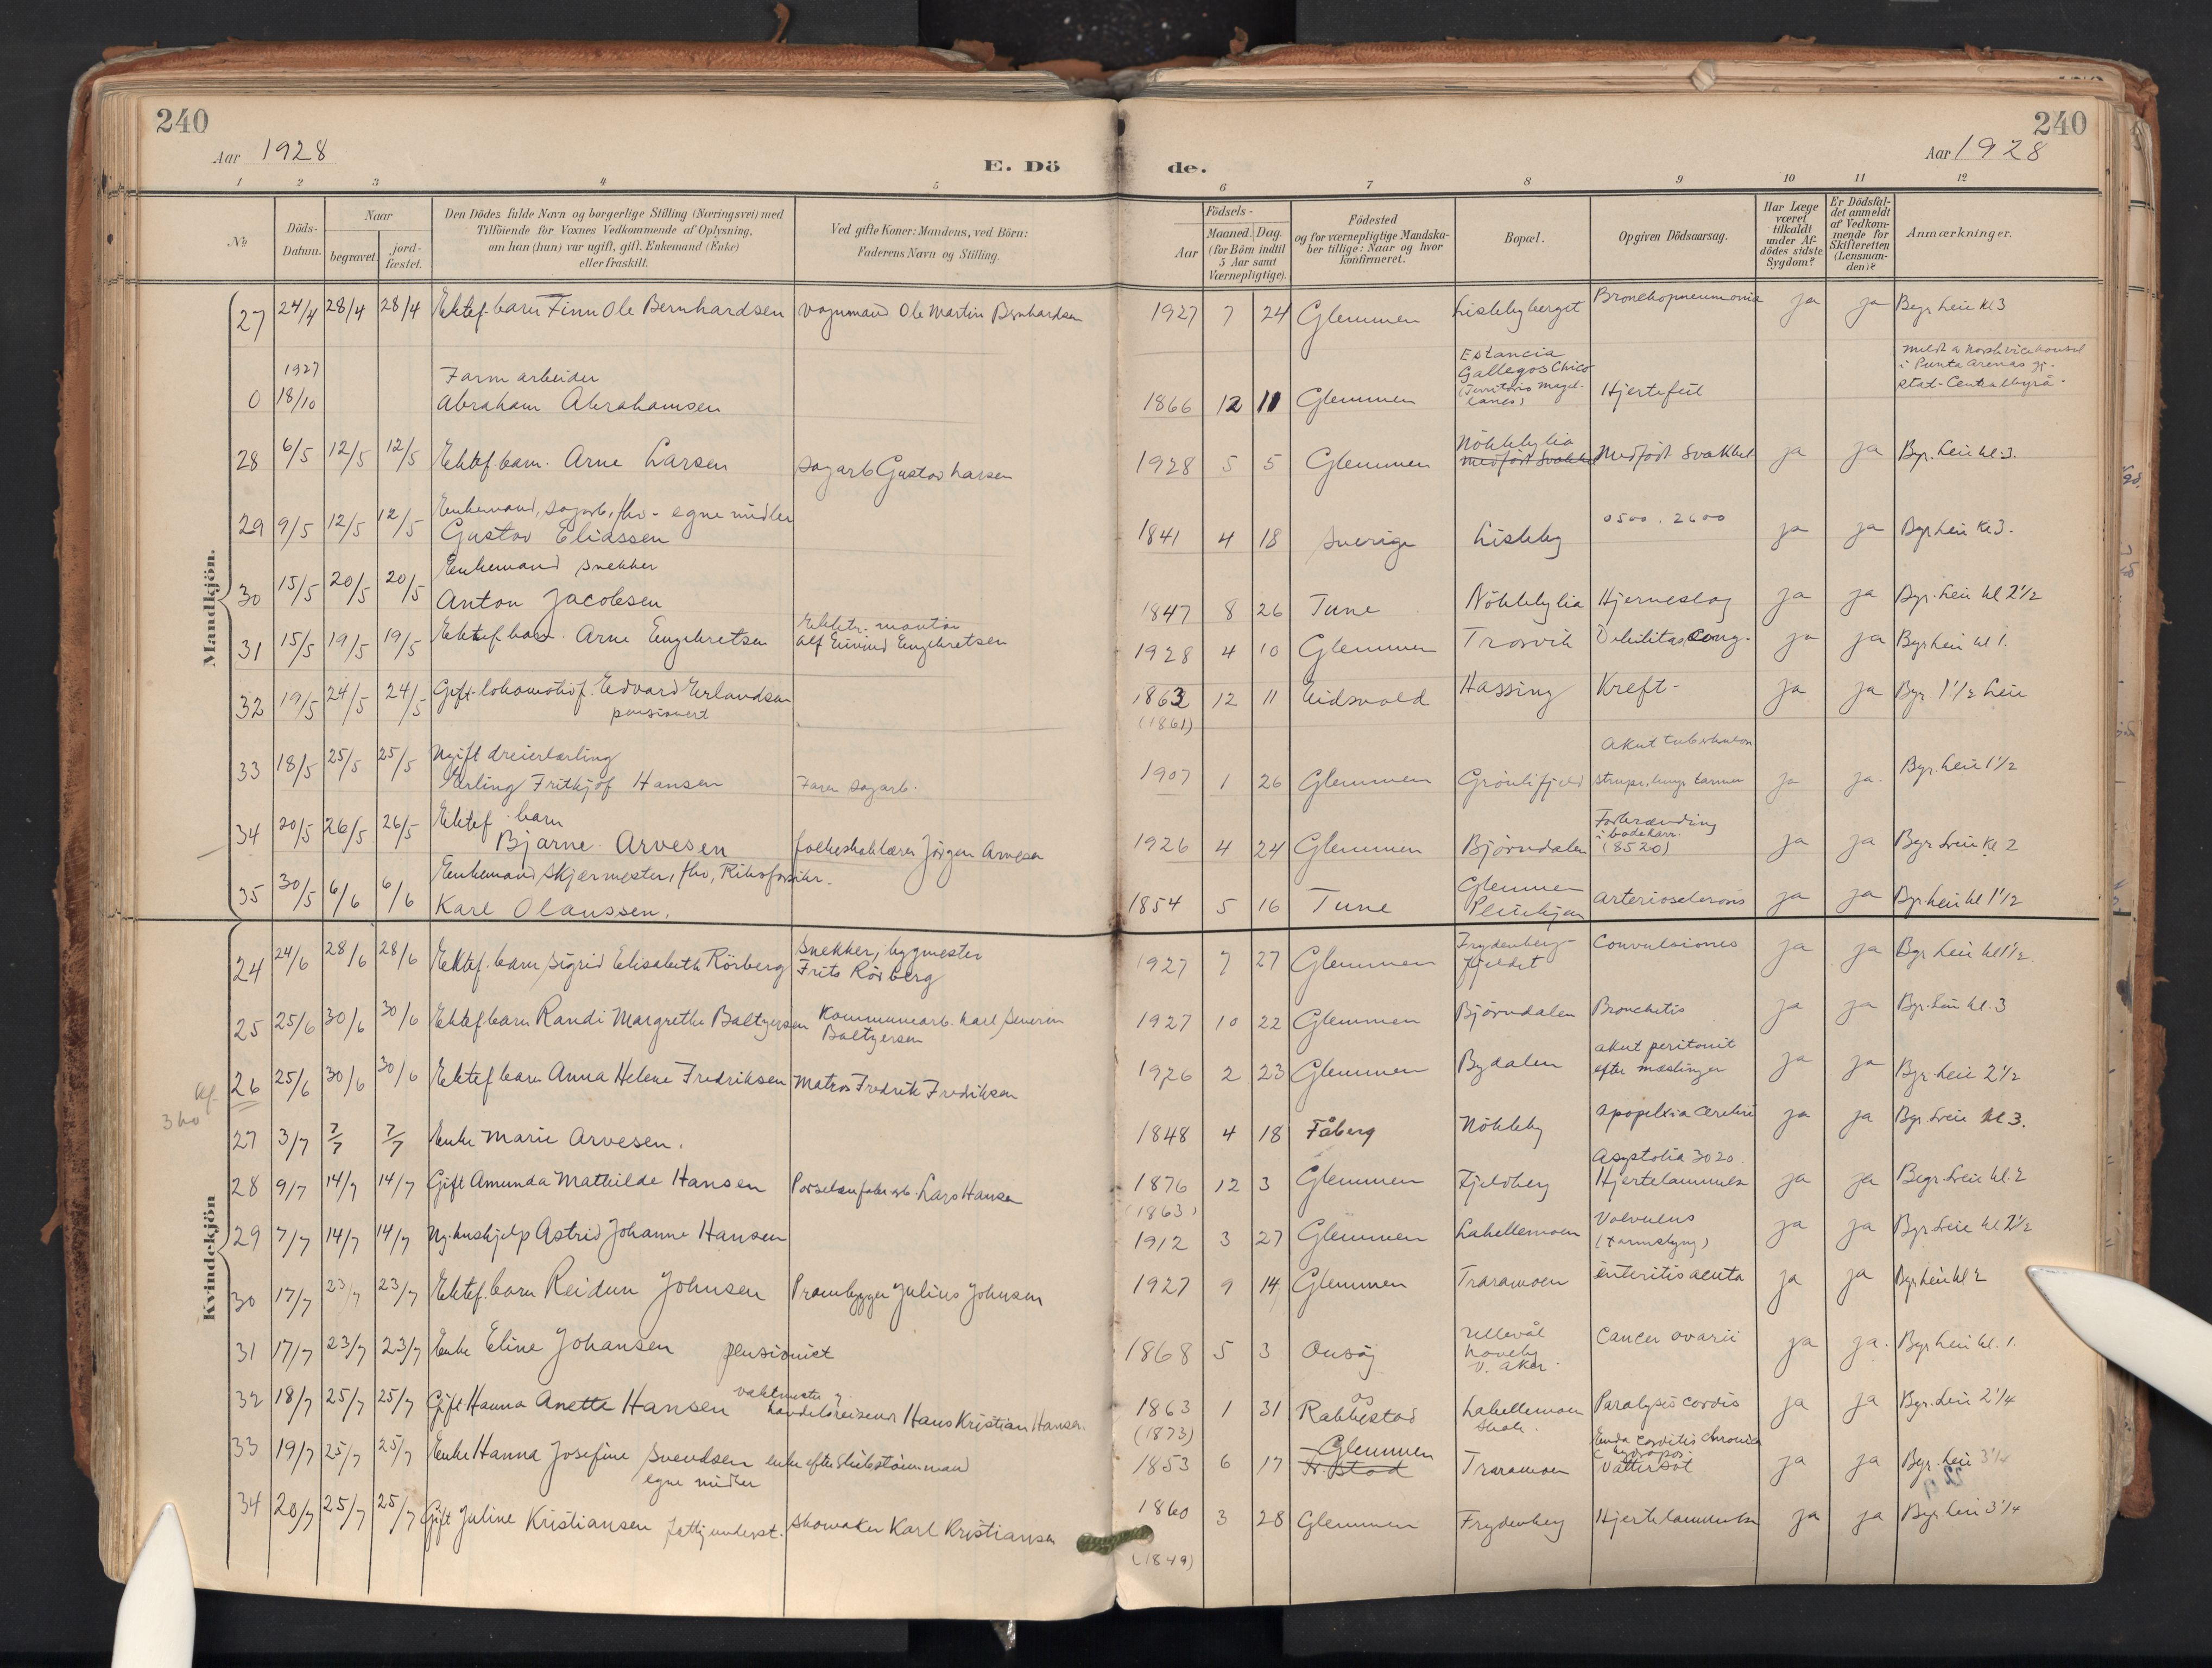 240
240
Aar 1928
E. Dö
de.
Aar 1928
1 2 3 4 5 6 7 8 9 10 11 12
No
Döds-
Datum.
Naar
begravet.
jord-
fæstet.
Den Dödes fulde Navn og borgerlige Stilling (Næringsvei) med
Tilföiende for Voxnes Vedkommende af Oplysning,
om han (hun) var ugift, gift, Enkemand (Enke)
eller fraskilt.
Ved gifte Koner: Mandens, ved Börn:
Faderens Navn og Stilling.
Födsels-
Aar
Maaned. Dag.
(for Börn indtil
5 Aar samt
Værnepligtige).
Födested
og for værnepligtige Mandska-
ber tillige: Naar og hvor
konfirmeret.
Bopæl.
Opgiven Dödsaarsag.
Har Læge
været
tilkaldt
under Af-
dödes sidste
Sygdom?
Er Dödsfal-
det anmeldt
af Vedkom-
mende for
Skifteretten
(Lensman-
den)?
Anmærkninger.
Mandkjön.
27 24/4 28/4 28/4 Ektef. barn Finn Ole Bernhardsen vognmand Ole Martin Bernhardsen 1927 7 24 Glemmen Lislebyberget Bronchopneumonia ja ja Bgr. Leie kl 3
1927
0 18/10 Farmarbeider
Abraham Abrahamsen 1866 12 11 Glemmen
Estancia
Gallegos Chico
(Territorio Magel-
lanes)
Hjertefeil
meldt a Norsk vicekonsul
i Punta Arenas gj.
Stat. Centralbyrå.
28 6/5 12/5 12/5 Ektef. barn. Arne Larsen sagarb Gustav Larsen 1928 5 5 Glemmen Nökkelylia
medfödt Svakhet
Medfödt Svakhet ja ja Bgr. Leie kl. 3.
29 9/5 12/5 12/5 Enkemand, sagarb., fhv - egne midler
Gustav Eliassen 1841 4 18 Sverige Lisleby 0500. 2600 ja ja Bgr Leie Kl 3.
30 15/5 20/5 20/5 Enkemand snekker
Anton Jacobsen 1847 8 26 Tune Nökkelylia Hjerneslag ja ja Bgr. Leie kl 2 1/2
31 15/5 19/5 19/5 Ektef. barn. Arne Engebretsen Elektr. montör
Alf Eivind Engebretsen 1928 4 10 Glemmen Trosvik Debilitas cong. ja ja Bgr Leie kl 1.
32 19/5 24/5 24/5 Gift lokomotivf. Edvard Erlandsen
pensionert 1863 12 11 Eidsvold Hassing Kreft ja ja Bgr. 1 1/2 Leie
(1861)
33 18/5 25/5 25/5 Ugift dreierlærling
Erling Frithjof Hansen Faren sagarb. 1907 1 26 Glemmen Grönlifjeld Akut tuberkulose
strupe, lunge tarmer ja ja. Bgr. Leie 1 1/2
34 20/5 26/5 26/5 Ektef. barn
Bjarne Arvesen folkeskolelærer Jörgen Arvesen 1926 4 24 Glemmen Björndalen Forbrænding
i badekarr.
(8520) ja ja Bgr. Leie Kl 2
35 30/5 6/6 6/6 Enkemand skjærmester, fhv,
Karl Olaussen. 1854 5 16 Tune Glemmen
Pleiehjem Arteriosclerosis ja ja Bgr Leie kl 1 1/2
Kvindekjön
24 24/6 28/6 28/6 Ektef. barn Sigrid Elisabeth Rörberg Snekker, bygmester
Frits Rörberg 1927 7 27 Glemmen Frydenberg-
fjeldet Convulsiones ja ja Bgr. Leie kl 1 1/2.
25 25/6 30/6 30/6 Ektef barn Randi Margrethe Baltzersen Kommunearb. Karl Severin
Baltzersen 1927 10 22 Glemmen Björndalen Bronchitis ja ja Bgr. Leie kl. 3
26 25/6 30/6 30/6 Ektef barn Anna Helene Fredriksen Matros Fredrik Fredriksen 1926 2 23 Glemmen Bydalen akut peritonit
efter mæslinger ja ja Bgr. Leie 2 1/2
27 3/7 7/7 7/7 Enke Marie Arvesen. 1848 4 18 Fåberg Nökleby Apoplexia cerebri ja ja Bgr. Leie Kl 3.
28 9/7 14/7 14/7 Gift Amunda Mathilde Hansen Porselænfabr arb Lars Hansen 1876 12 3 Glemmen Fjeldberg Asystolia 3020.
Hjertelammelse ja ja Begr. Leie kl. 2
(1863)
29 7/7 14/7 14/7 Ug. hushjelp Astrid Johanne Hansen 1912 3 27 Glemmen Lahellemoen Volvulus
(tarmslyng) ja ja Bgr Leie kl 2 1/2
30 17/7 23/7 23/7 Ektef. barn Reidun Johnsen Prambygger Julius Johnsen 1927 9 14 Glemmen Traramoen enteritis acuta ja ja Bgr. Leie kl 2
31 17/7 23/7 23/7 Enke Eline Johansen pensionist 1868 5 3 Onsöj Ullevål
Haveby
V. Aker. Cancer ovarii ja ja. Bgr Leie kl. 1.
32 18/7 25/7 25/7 Gift Hanna Anette Hansen vaktmester og
handelsreisende Hans Kristian Hansen. 1863 1 31 Rakkestad Lahellemoen
skole. Paralysis cordis ja ja Bgr. Leie 2 1/4
(1873)
33 19/7 25/7 25/7 Enke Hanna Josefine Svendsen enke efter skibstömmermand
egne midler 1853 6 17 Glemmen
Fr.stad Traramoen Endocarditis chronica
hydrops
Vattersot ja ja Bgr. Leie 3 1/4
34 20/7 25/7 25/7 Gift Juline Kristiansen fattigunderst. skomaker Karl Kristiansen 1860 3 28 Glemmen Frydenberg Hjertelammelse ja ja Bgr Leie 3 1/4
(1849)